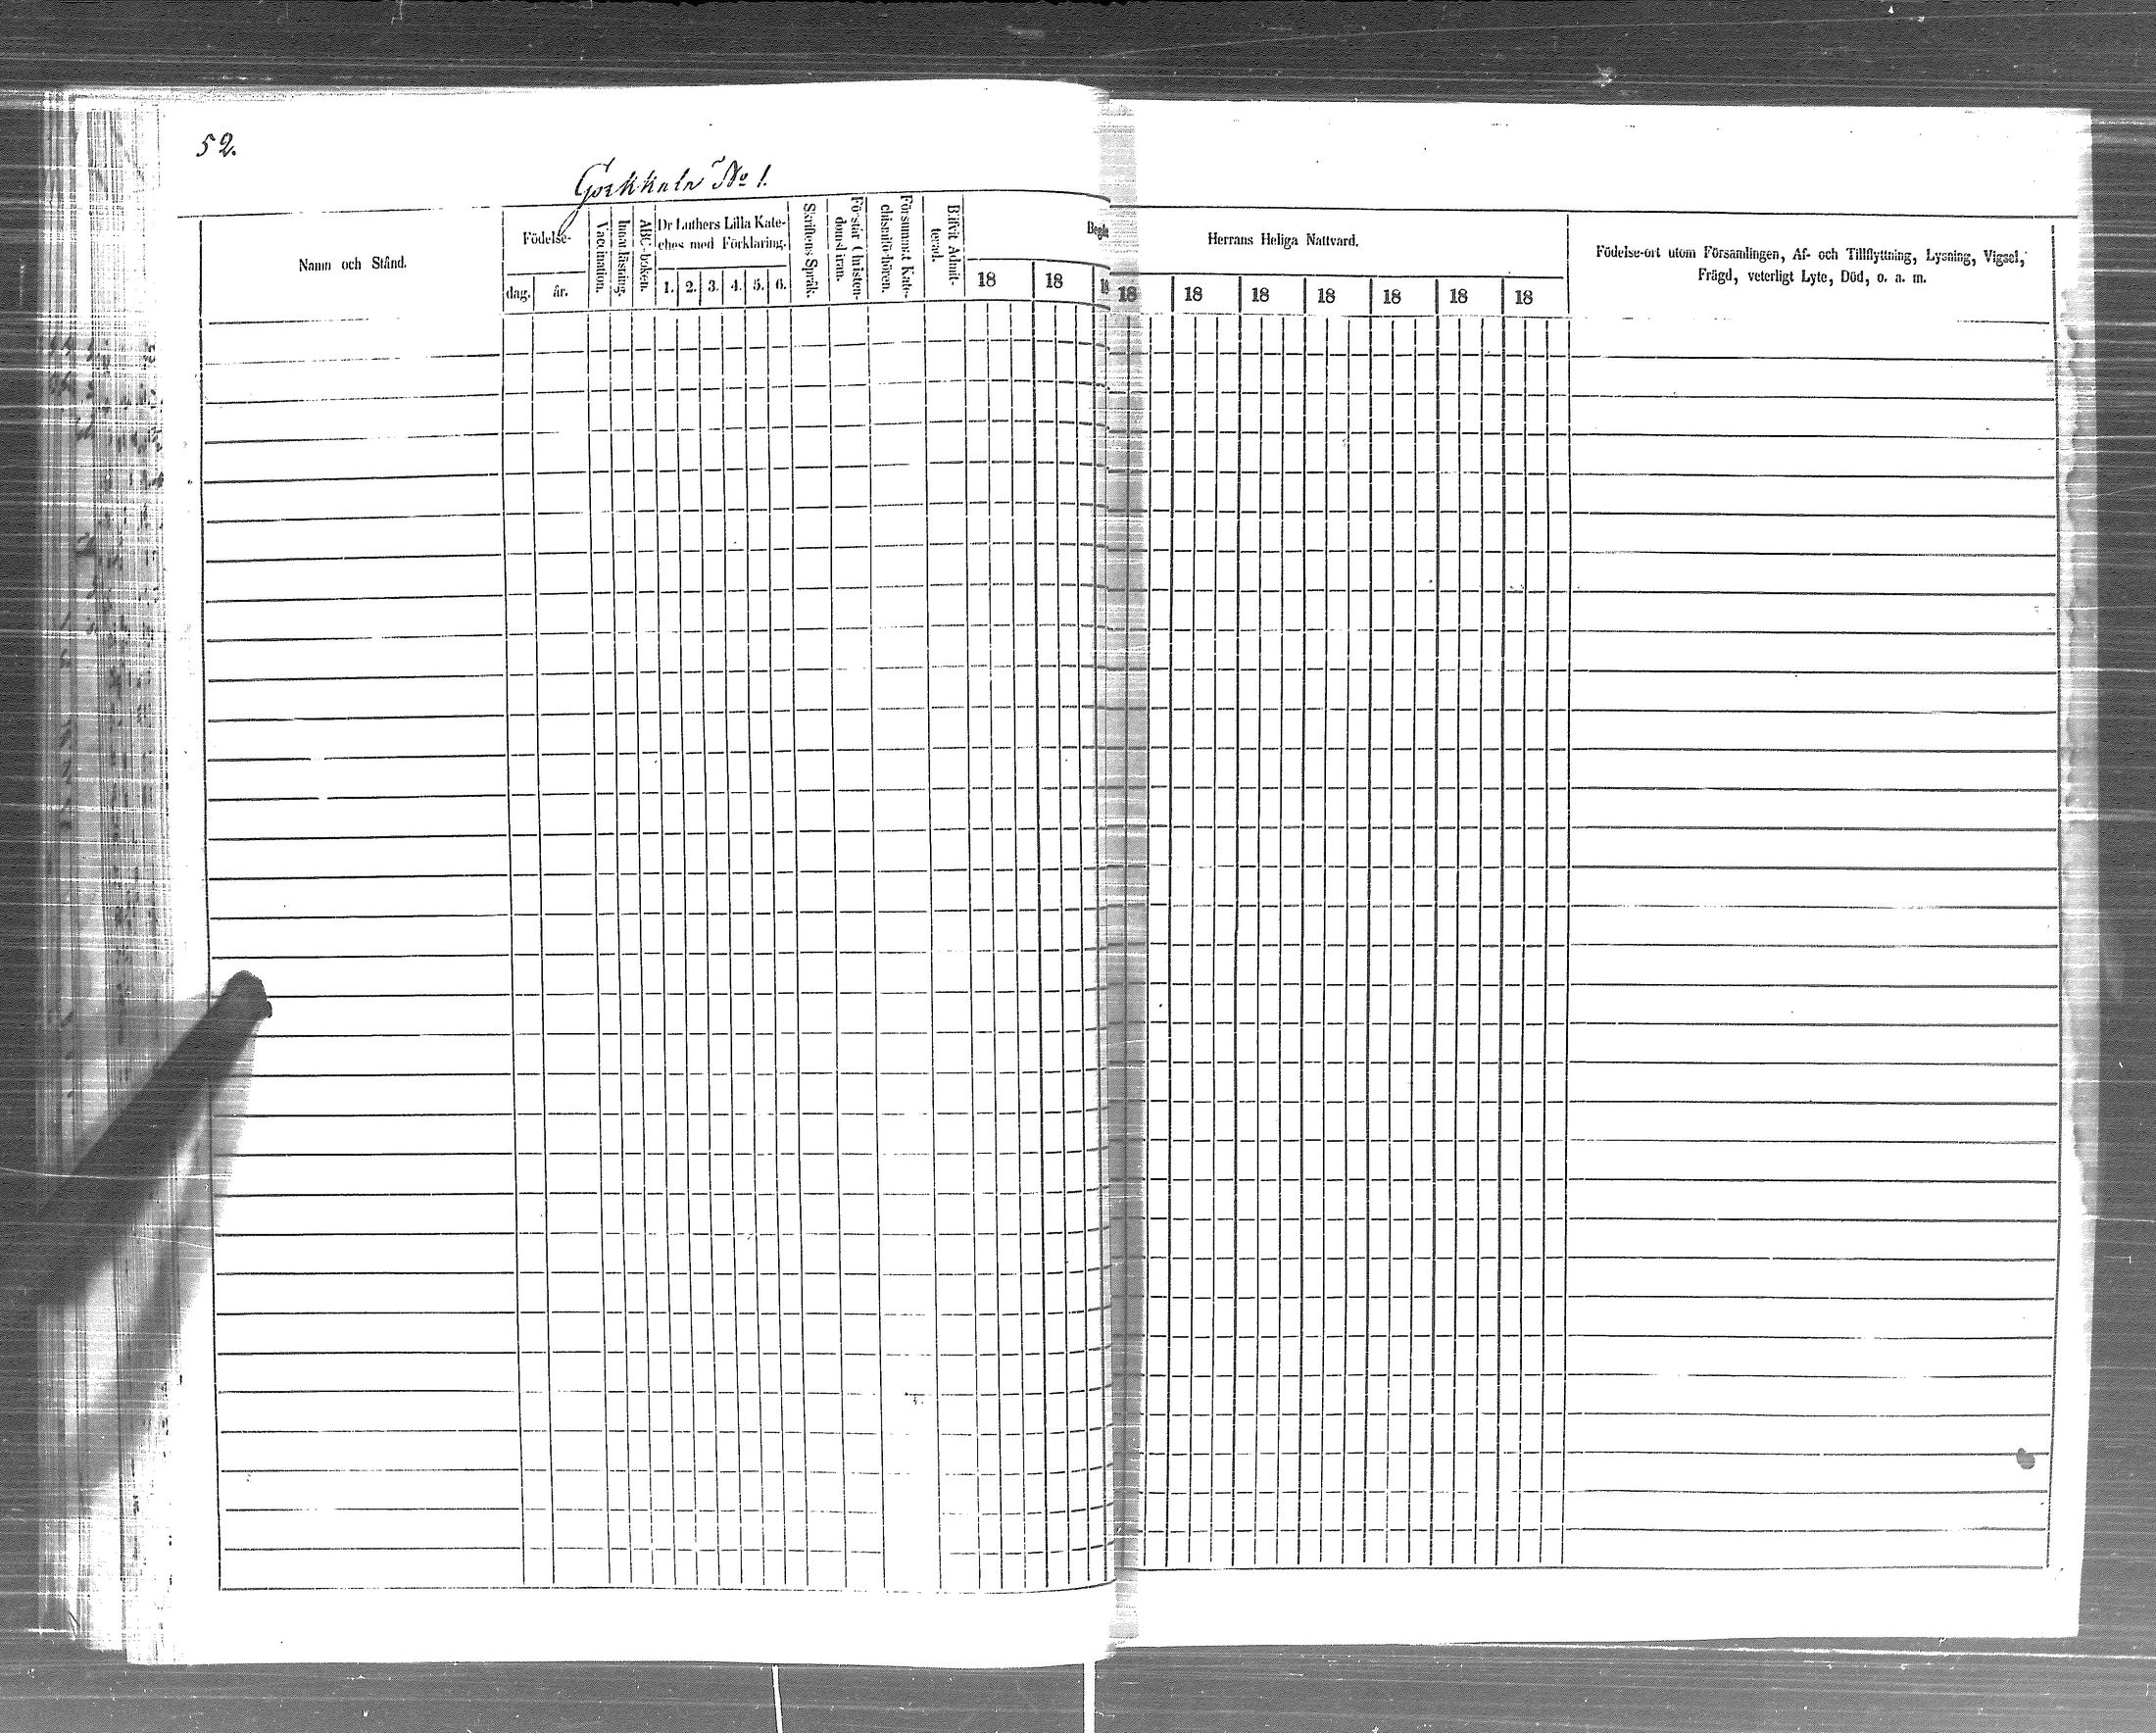 52.
Gorkkala No 1.
Namn och Stånd.
Födelse-
dag.
år.
Vaccination.
Innanläsning.
ABC-boken.
Dr Luthers Lilla Kate-
ches med Förklaring.
1. 2. 3. 4. 5. 6.
Skriftens Språk.
Förstår Christen-
domsläran.
Försummat Kate-
chismiförhören.
Blifvit Admit-
terad.
18 18
Herrans Heliga Nattvard.
18 18 18 18 18 18 18
Födelse-ort utom Församlingen, Af- och Tillflyttning, Lysning, Vigsel,
Frägd, veterligt Lyte, Död, o. a. m.